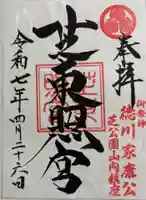 奉拝
御祭神
徳川家康公
芝公園山内鎮座
芝東照宮
令和七年四月二十六日